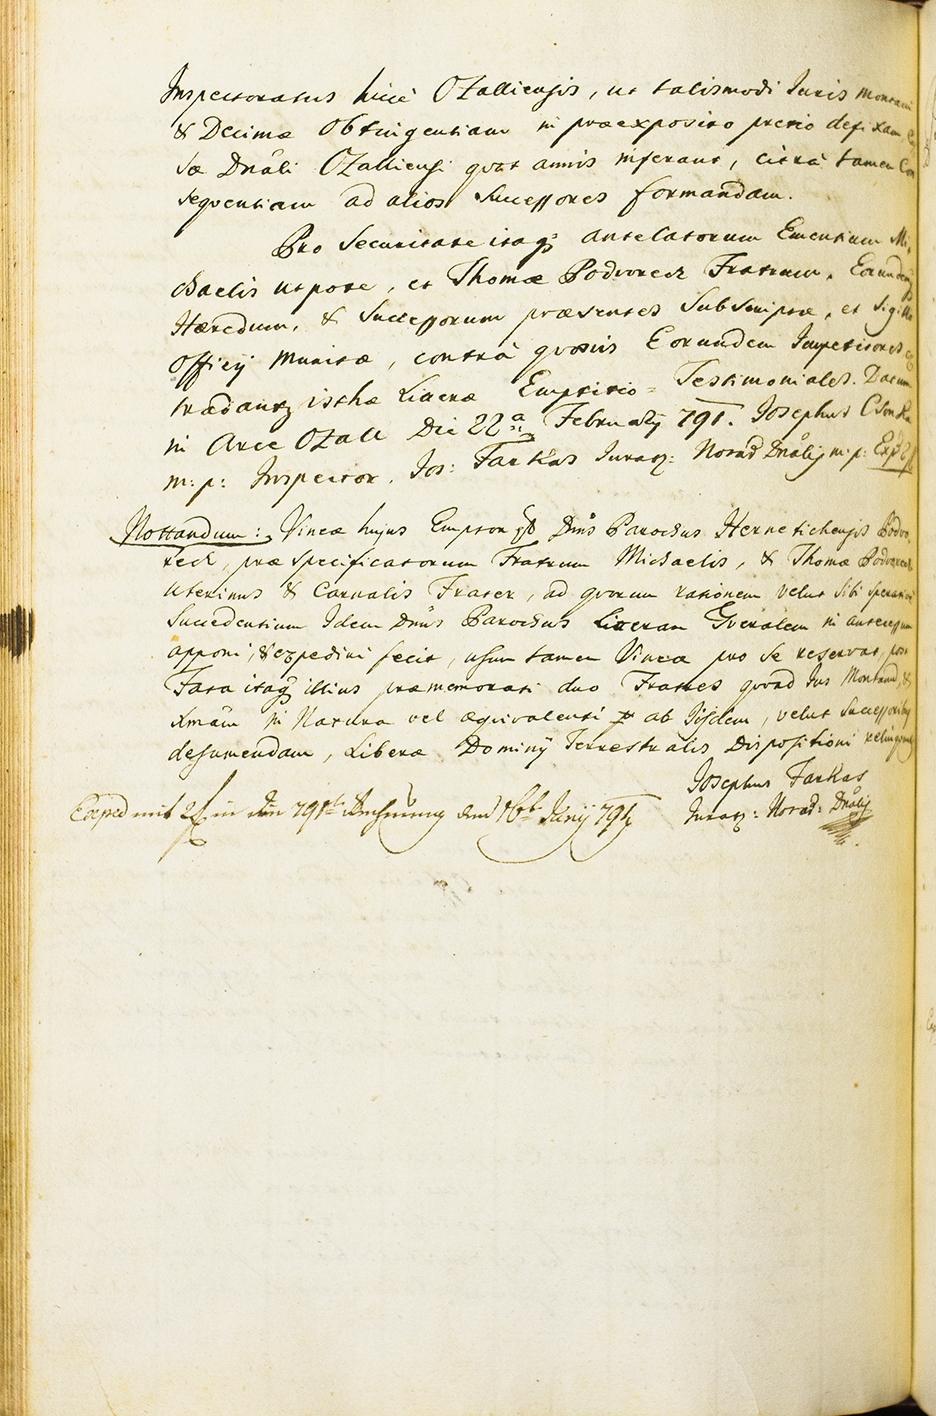 Inspectoratus huic Ozalliensis, ut talismodi Juris montani
& Decimæ obtingentiam in præexposito pretio defixam
sæ Dnāli Ozalliensi quot annis inferant, citrà tamen Con
sequentiam ad alios Successores formandam.
Pro Securitate itaq; antelatorum Ementium Mi,
chaelis utpote, et Thomæ Podvorecz Fratrum, Eorundem
Hæredum, & Successorum præsentes Subscriptæ, et Sigillo
Officij munitæ, contrà quosvis Eorundem Impetitores
tradantr isthæ Literæ Emptitio = Testimoniales. Datum
in Arce Ozall Die 22a Februarij 791. Josephus
m: p: Inspector, Jos: Farkas Juratg: Norad Dnālij m: p:
Nottandum: Vineæ hujus Emptor Dnus Parochus Hernetichensis Podvo,
recz, præspecificatorum Fratrum Michaelis, & Thomæ Podvorecz
Uterinus & Carnalis Frater, ad quorum rationem velut sibi
Succedentium Idem Dnus Parochus Literam in
apponi, & expediri fecit, usum tamen Vineæ pro se reservat, post
Fata itaq; illius præmemorati duo Fratres quoad Jus Montanum, &
Xmam in Natura vel æquivalenti ab Iisdem, velut Successoribus
desumendam, Liberæ Dominij Terrestralis Dispositioni
Josephus Farkas
Juratg: Norad: Dnālij
Exped mit 2f in 791 Rechnung den Junij 791